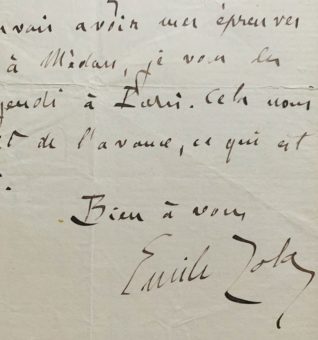 avais avoir mes épreuves
à Médan, je vous les
jeudi à Paris. Cela nous
t de l'avance, ce qui est
Bien à vous
Emile Zola